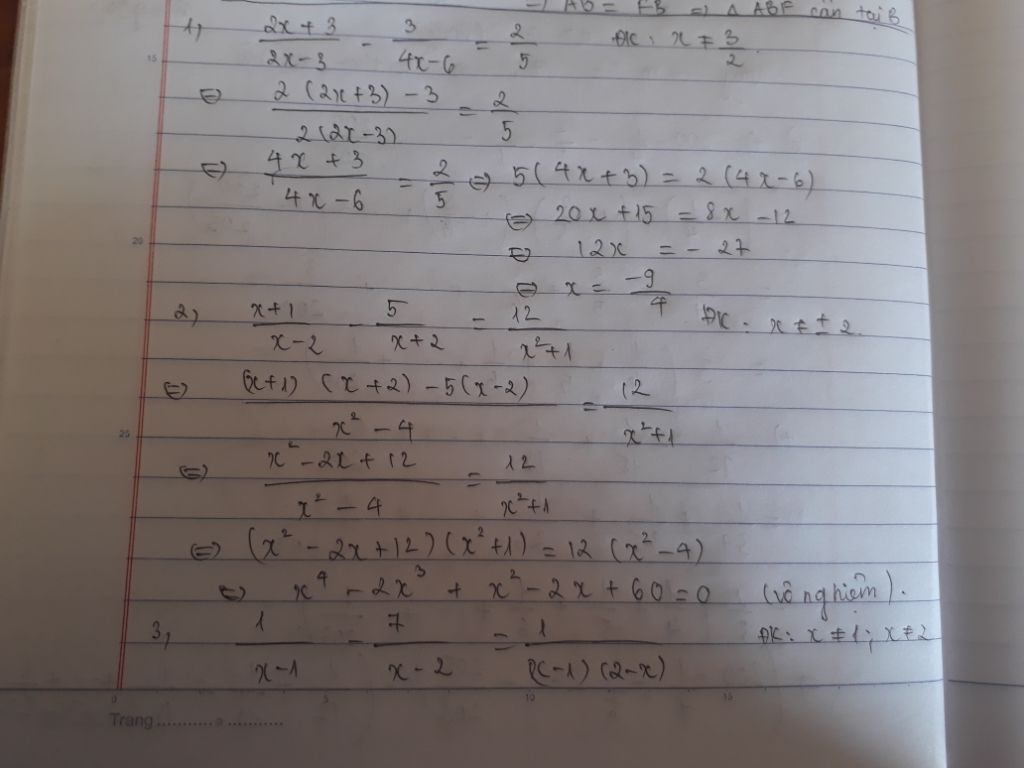 => AB = FB => Δ ABF cân tại B
1, (2x+3)/(2x-3) - 3/(4x-6) = 2/5 ĐK: x ≠ 3/2
15
⇔ (2(2x+3) - 3)/(2(2x-3)) = 2/5
⇔ (4x+3)/(4x-6) = 2/5 ⇔ 5(4x+3) = 2(4x-6)
⇔ 20x+15 = 8x-12
20
⇔ 12x = -27
⇔ x = -9/4
2, (x+1)/(x-2) - 5/(x+2) = 12/(x²+1) ĐK: x ≠ ± 2.
⇔ ((x+1)(x+2) - 5(x-2))/(x²-4) = 12/(x²+1)
25
⇔ (x²-2x+12)/(x²-4) = 12/(x²+1)
⇔ (x²-2x+12)(x²+1) = 12(x²-4)
⇔ x⁴ - 2x³ + x² - 2x + 60 = 0 (vô nghiệm).
3, 1/(x-1) - 7/(x-2) = 1/((x-1)(2-x)) ĐK: x ≠ 1; x ≠ 2
0 5 10 15
Trang